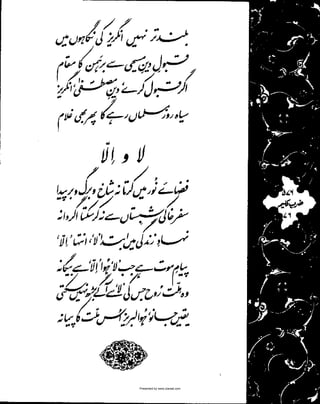 بلند تر نہیں انگریز کی نگاہوں میں
قبولِ دینِ مسیحی سے برہمن کا مقام
اگر قبول کرے دینِ مصطفیٰؐ انگریز
سیاہ روز مسلماں رہے گا پھر بھی غلام
لا و إلّا
فضائے نور میں کرتا نہ شاخ و برگ و بر پیدا
سفر خاکی شبستاں سے نہ کر سکتا اگر دانہ
نہادِ زندگی میں ابتدا 'لا'، انتہا 'إلّا'
پیامِ موت ہے جب 'لا' ہوا 'إلّا' سے بیگانہ
وہ ملّت رُوح جس کی 'لا' سے آگے بڑھ نہیں سکتی
یقیں جانو، ہوا لبریز اُس ملّت کا پیمانہ
ضربِ کلیم
Presented by www.ziaraat.com